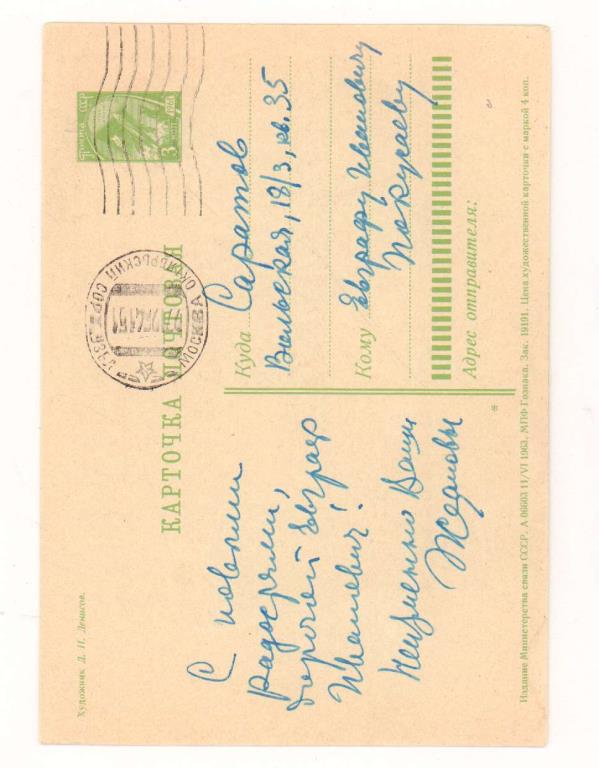 Художник Д. П. Денисов.
КАРТОЧКА ПОЧТОВАЯ
ПОЧТА СССР
3
МОСКВА ОКТЯБРЬСКИЙ
С новыми
радостями,
дорогой Евграф
Иванович!
Неизменно Ваши
Ждановы
Куда Саратов
Вольская, 18/3, кв. 35
Кому Евграфу Ивановичу
Покусаеву
Адрес отправителя:
Издание Министерства связи СССР. А 06603 11/VI 1963. МПФ Гознака. Зак. 19191. Цена художественной карточки с маркой 4 коп.